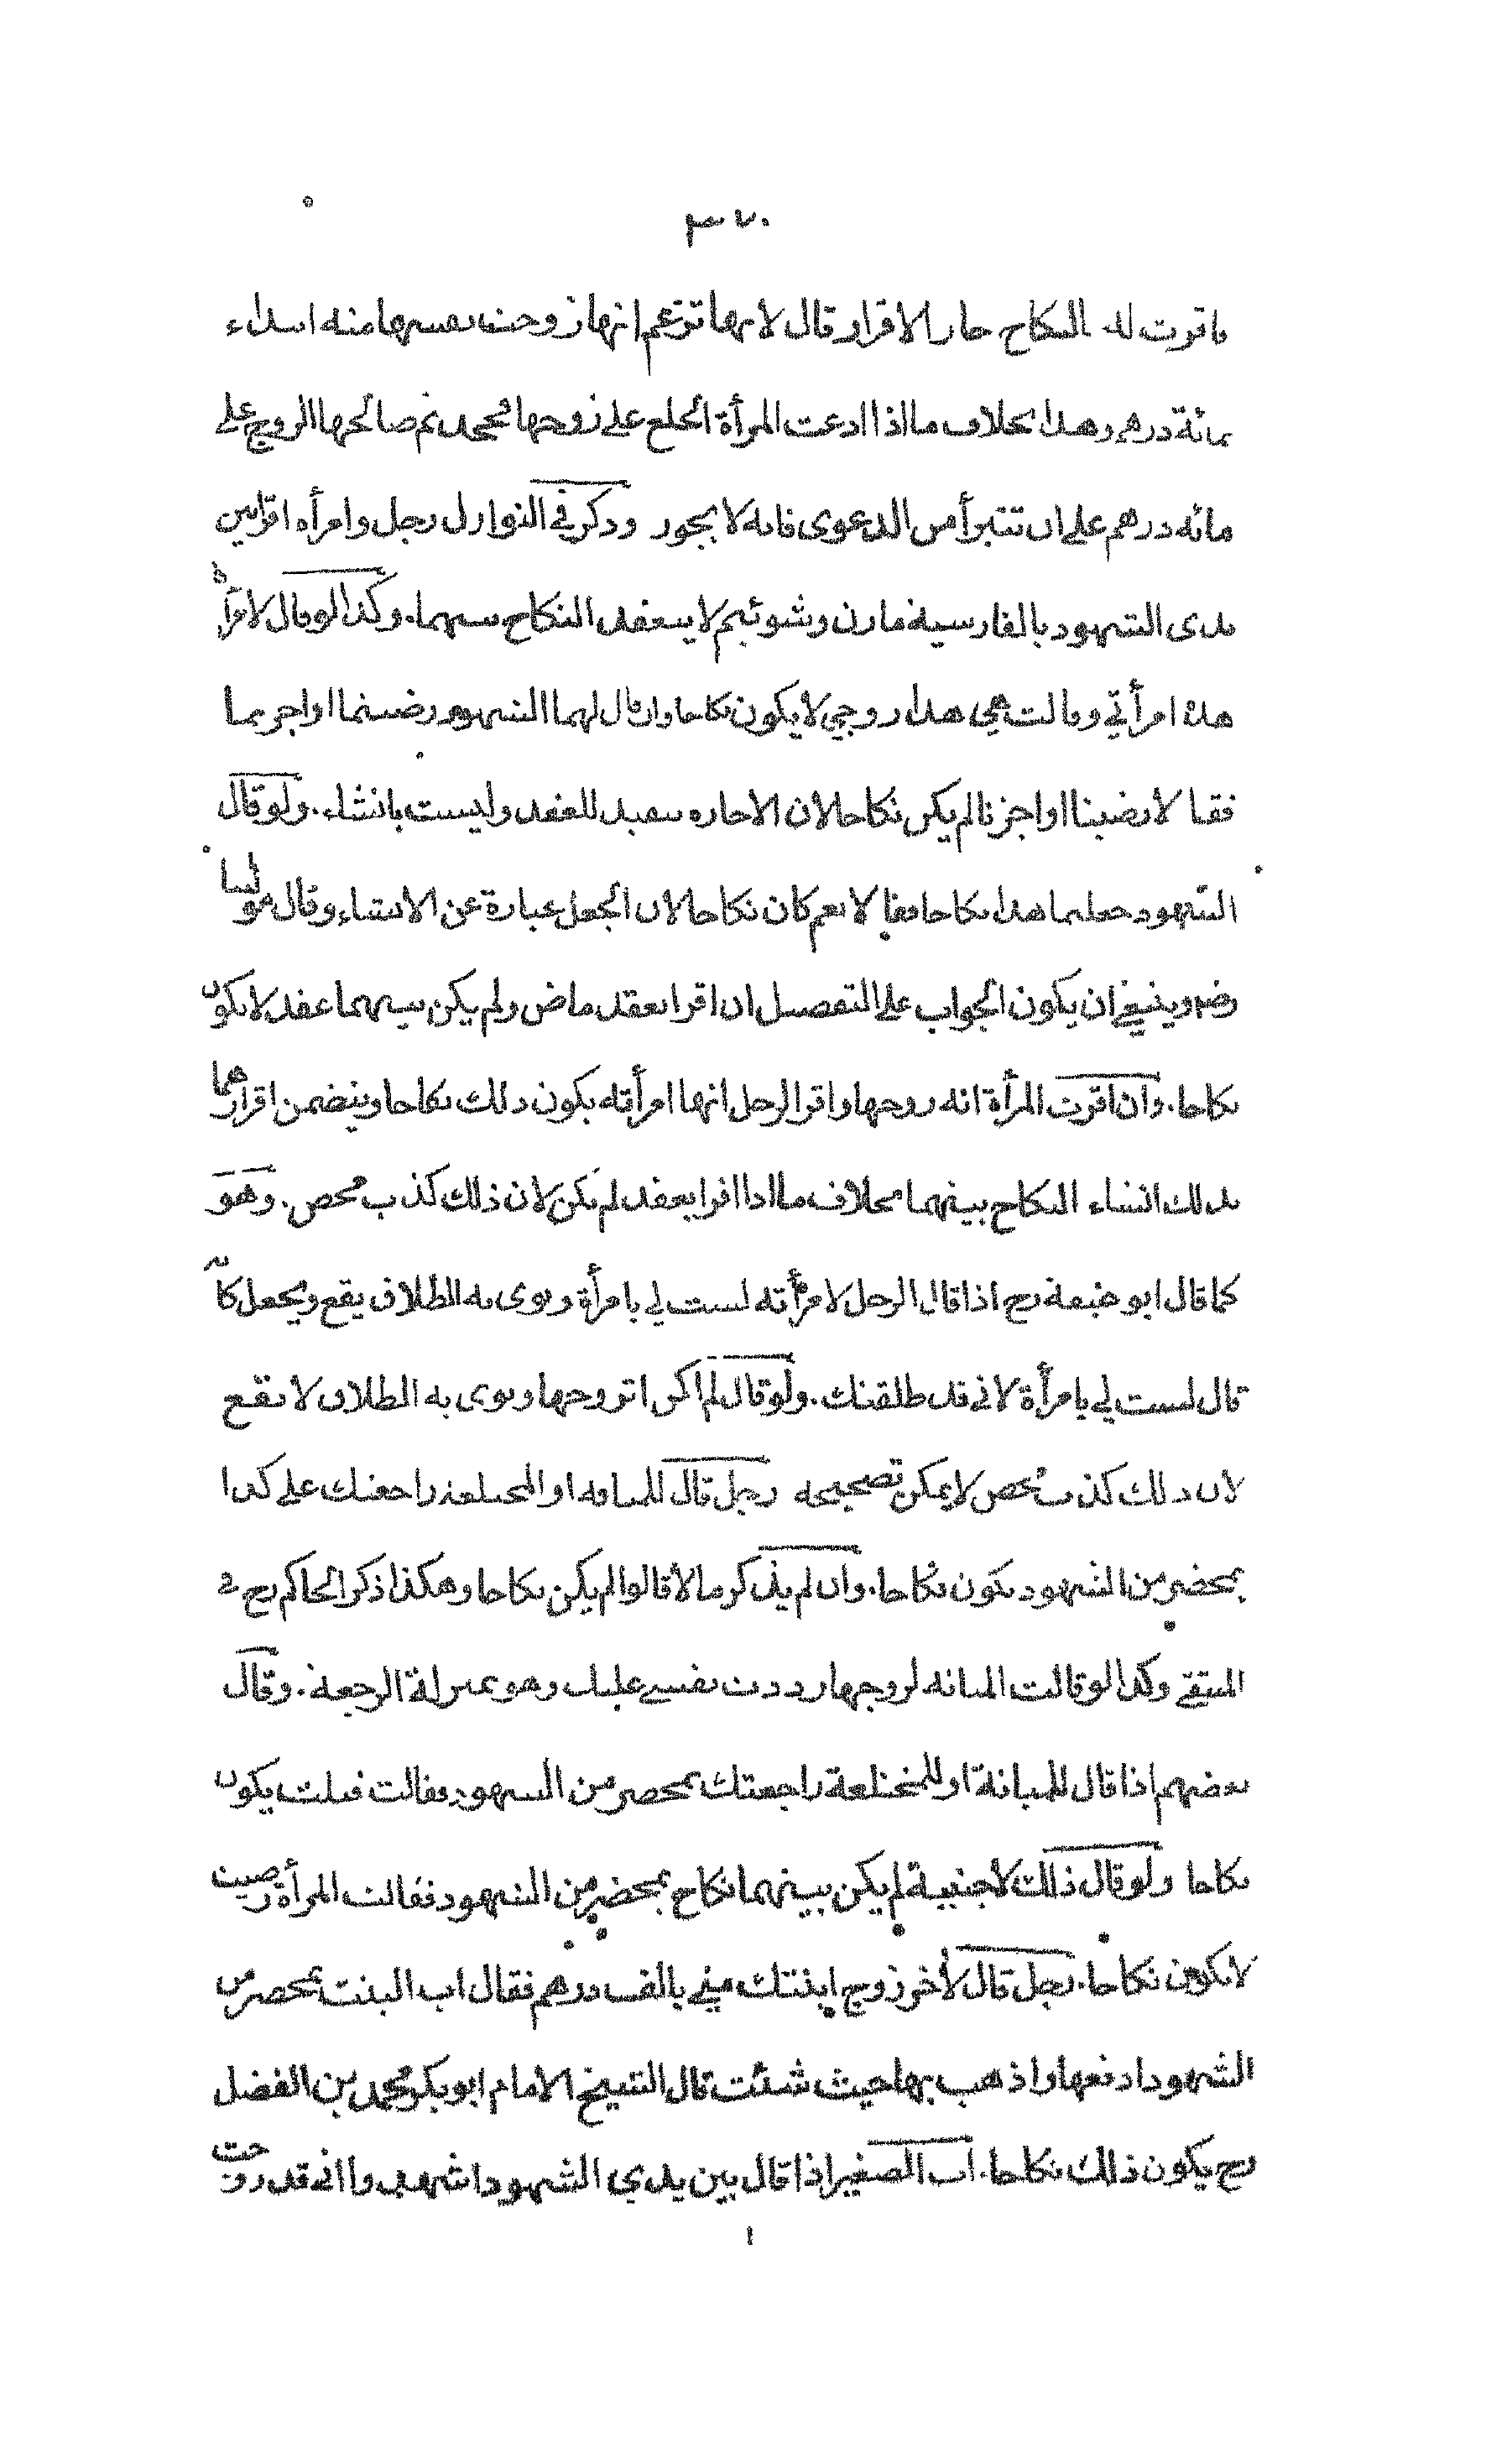 ٣٧٠
فاقرت له بالنكاح جاز الاقرار قال لانها تزعم انها زوجت نفسها منه ابتداء
بمائة درهم وهذا بخلاف ما اذا ادعت المرأة الخلع على زوجها فجحد ثم صالحها الزوج على
مائه درهم على ان تتبرأ من الدعوى فانه لا يجوز وذكر في النوازل رجل وامرأه اقرا بين
يدى الشهود بالفارسية مازن وشوئيم لا ينعقد النكاح بينهما. وكذا لو قال لامرأة
هذه امرأتي وقالت هي هذا زوجي لا يكون نكاحا وان قال لهما الشهود رضيتما او اجزتما
فقالا رضينا او اجزنا لم يكن نكاحا لان الاجازه تنفيذ للعقد وليست بانشاء. ولو قال
الشهود جعلتما هذا نكاحا فقالا نعم كان نكاحا لان الجعل عبارة عن الانشاء وقال مولنا
رضه وينبغي ان يكون الجواب على التفصيل ان اقرا بعقد ماض ولم يكن بينهما عقد لا يكون
نكاحا. وان اقرت المرأة انه زوجها واقر الرجل انها امرأته يكون ذلك نكاحا ويتضمن اقرارهما
بذلك انشاء النكاح بينهما بخلاف ما اذا اقرا بعقد لم يكن لان ذلك كذب محض. وهو
كما قال ابو حنيفة رح اذا قال الرجل لامرأته لست لي بامرأة ونوى به الطلاق يقع ويجعل كانه
قال لست لي بامرأة لاني قد طلقتك. ولو قال لم اكن اتزوجها ونوى به الطلاق لا يقع
لان ذلك كذب محض لا يمكن تصحيحه رجل قال للمبانه او المختلعة راجعتك على كذا
بمحضر من الشهود يكون نكاحا. وان لم يذكر مالا قالوا لم يكن نكاحا وهكذا ذكر الحاكم رح في
المنتقى وكذا لو قالت المبانه لزوجها رددت نفسي عليك وهو بمنزلة الرجعة. وقال
بعضهم اذا قال للمبانة او للمختلعة راجعتك بمحضر من الشهود فقالت قبلت يكون
نكاحا ولو قال ذلك لاجنبية لم يكن بينهما نكاح بمحضر من الشهود فقالت المرأة رضيت
لا يكون نكاحا. رجل قال لآخر زوج ابنتك مني بالف درهم فقال اب البنت بمحضر من
الشهود ادفعها واذهب بها حيث شئت قال الشيخ الامام ابو بكر محمد بن الفضل
رح يكون ذلك نكاحا. اب الصغير اذا قال بين يدي الشهود اشهدوا اني قد زوجت